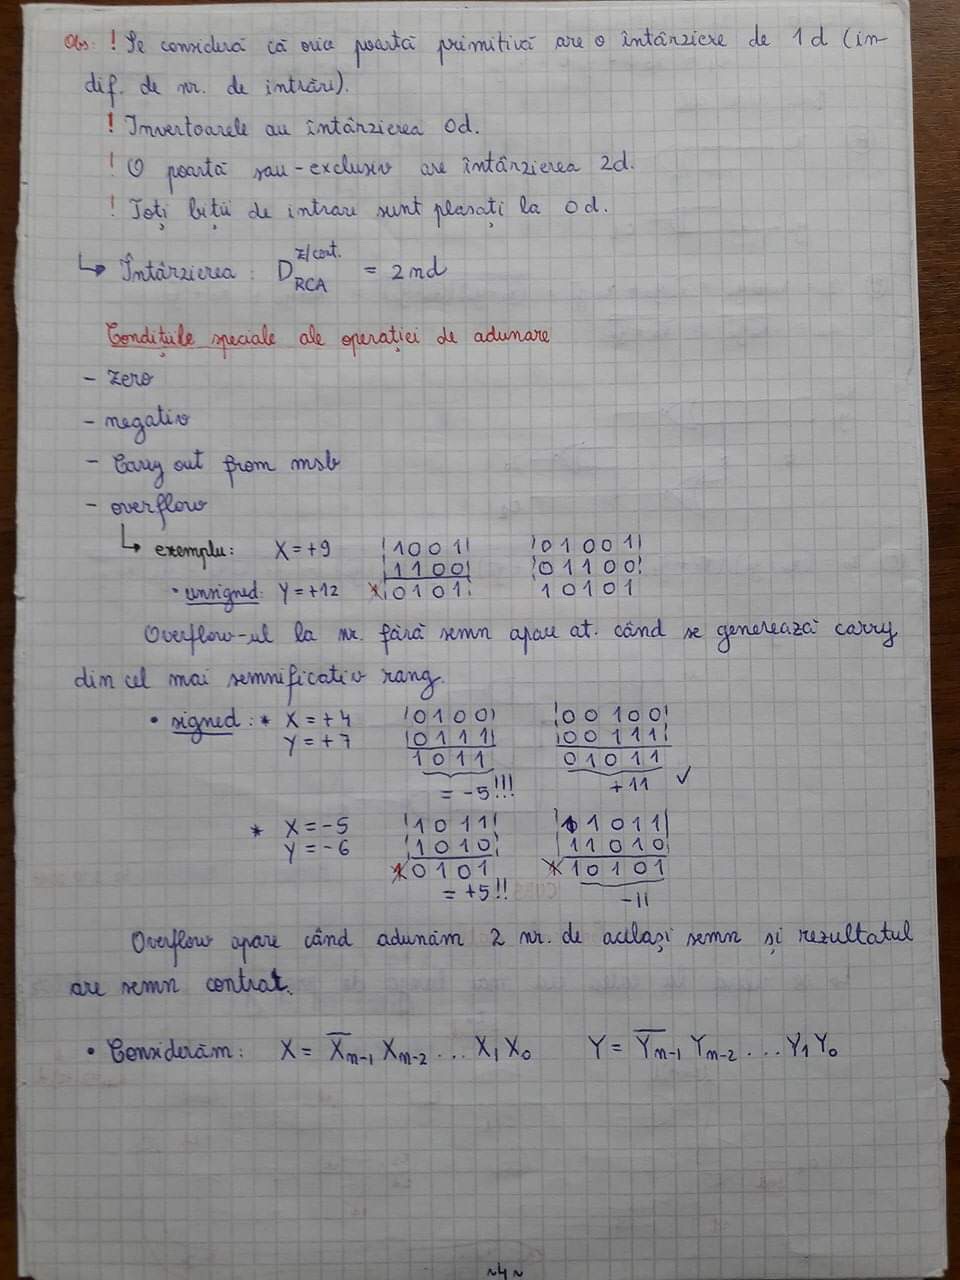 Obs: ! Se consideră că orice poartă primitivă are o întârziere de 1d (in-
dif. de nr. de intrări).
! Invertoarele au întârzierea 0d.
! O poartă sau-exclusiv are întârzierea 2d.
! Toți biții de intrare sunt plasați la 0d.
↳ Întârzierea: D RCA Σ/cout. = 2nd
Condițiile speciale ale operației de adunare
- zero
- negativ
- Carry out from msb
- overflow
↳ exemplu: X = +9 1001 01001
1100 01100
• unsigned: Y = +12 10101 10101
Overflow-ul la nr. fără semn apare at. când se generează carry
din cel mai semnificativ rang.
• signed: * X = +4 0100 00100
Y = +7 0111 00111
1011 01011
= -5!!! +11 ✓
* X = -5 1011 11011
Y = -6 1010 11010
10101 110101
= +5!! -11
Overflow apare când adunăm 2 nr. de același semn și rezultatul
are semn contrar.
• Considerăm: X = X̅n-1 Xn-2 ... X1 X0 Y = Y̅n-1 Yn-2 ... Y1 Y0
~4~